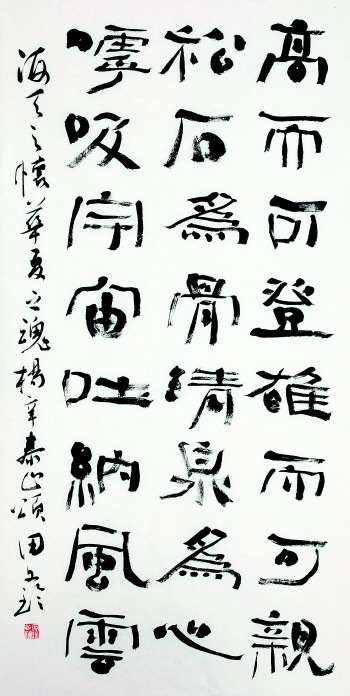 高而可登雄而可親
松石為骨清泉為心
嘑吸宇宙吐納風雲
海天之懷華夏之魂楊辛泰山頌田